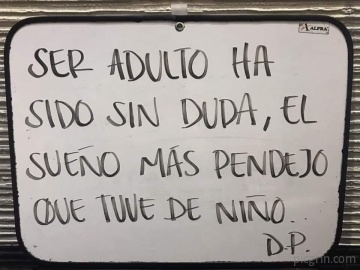 ALFRA
SER ADULTO HA
SIDO SIN DUDA, EL
SUEÑO MÁS PENDEJO
QUE TUVE DE NIÑO..
D.P.
picgrin.com